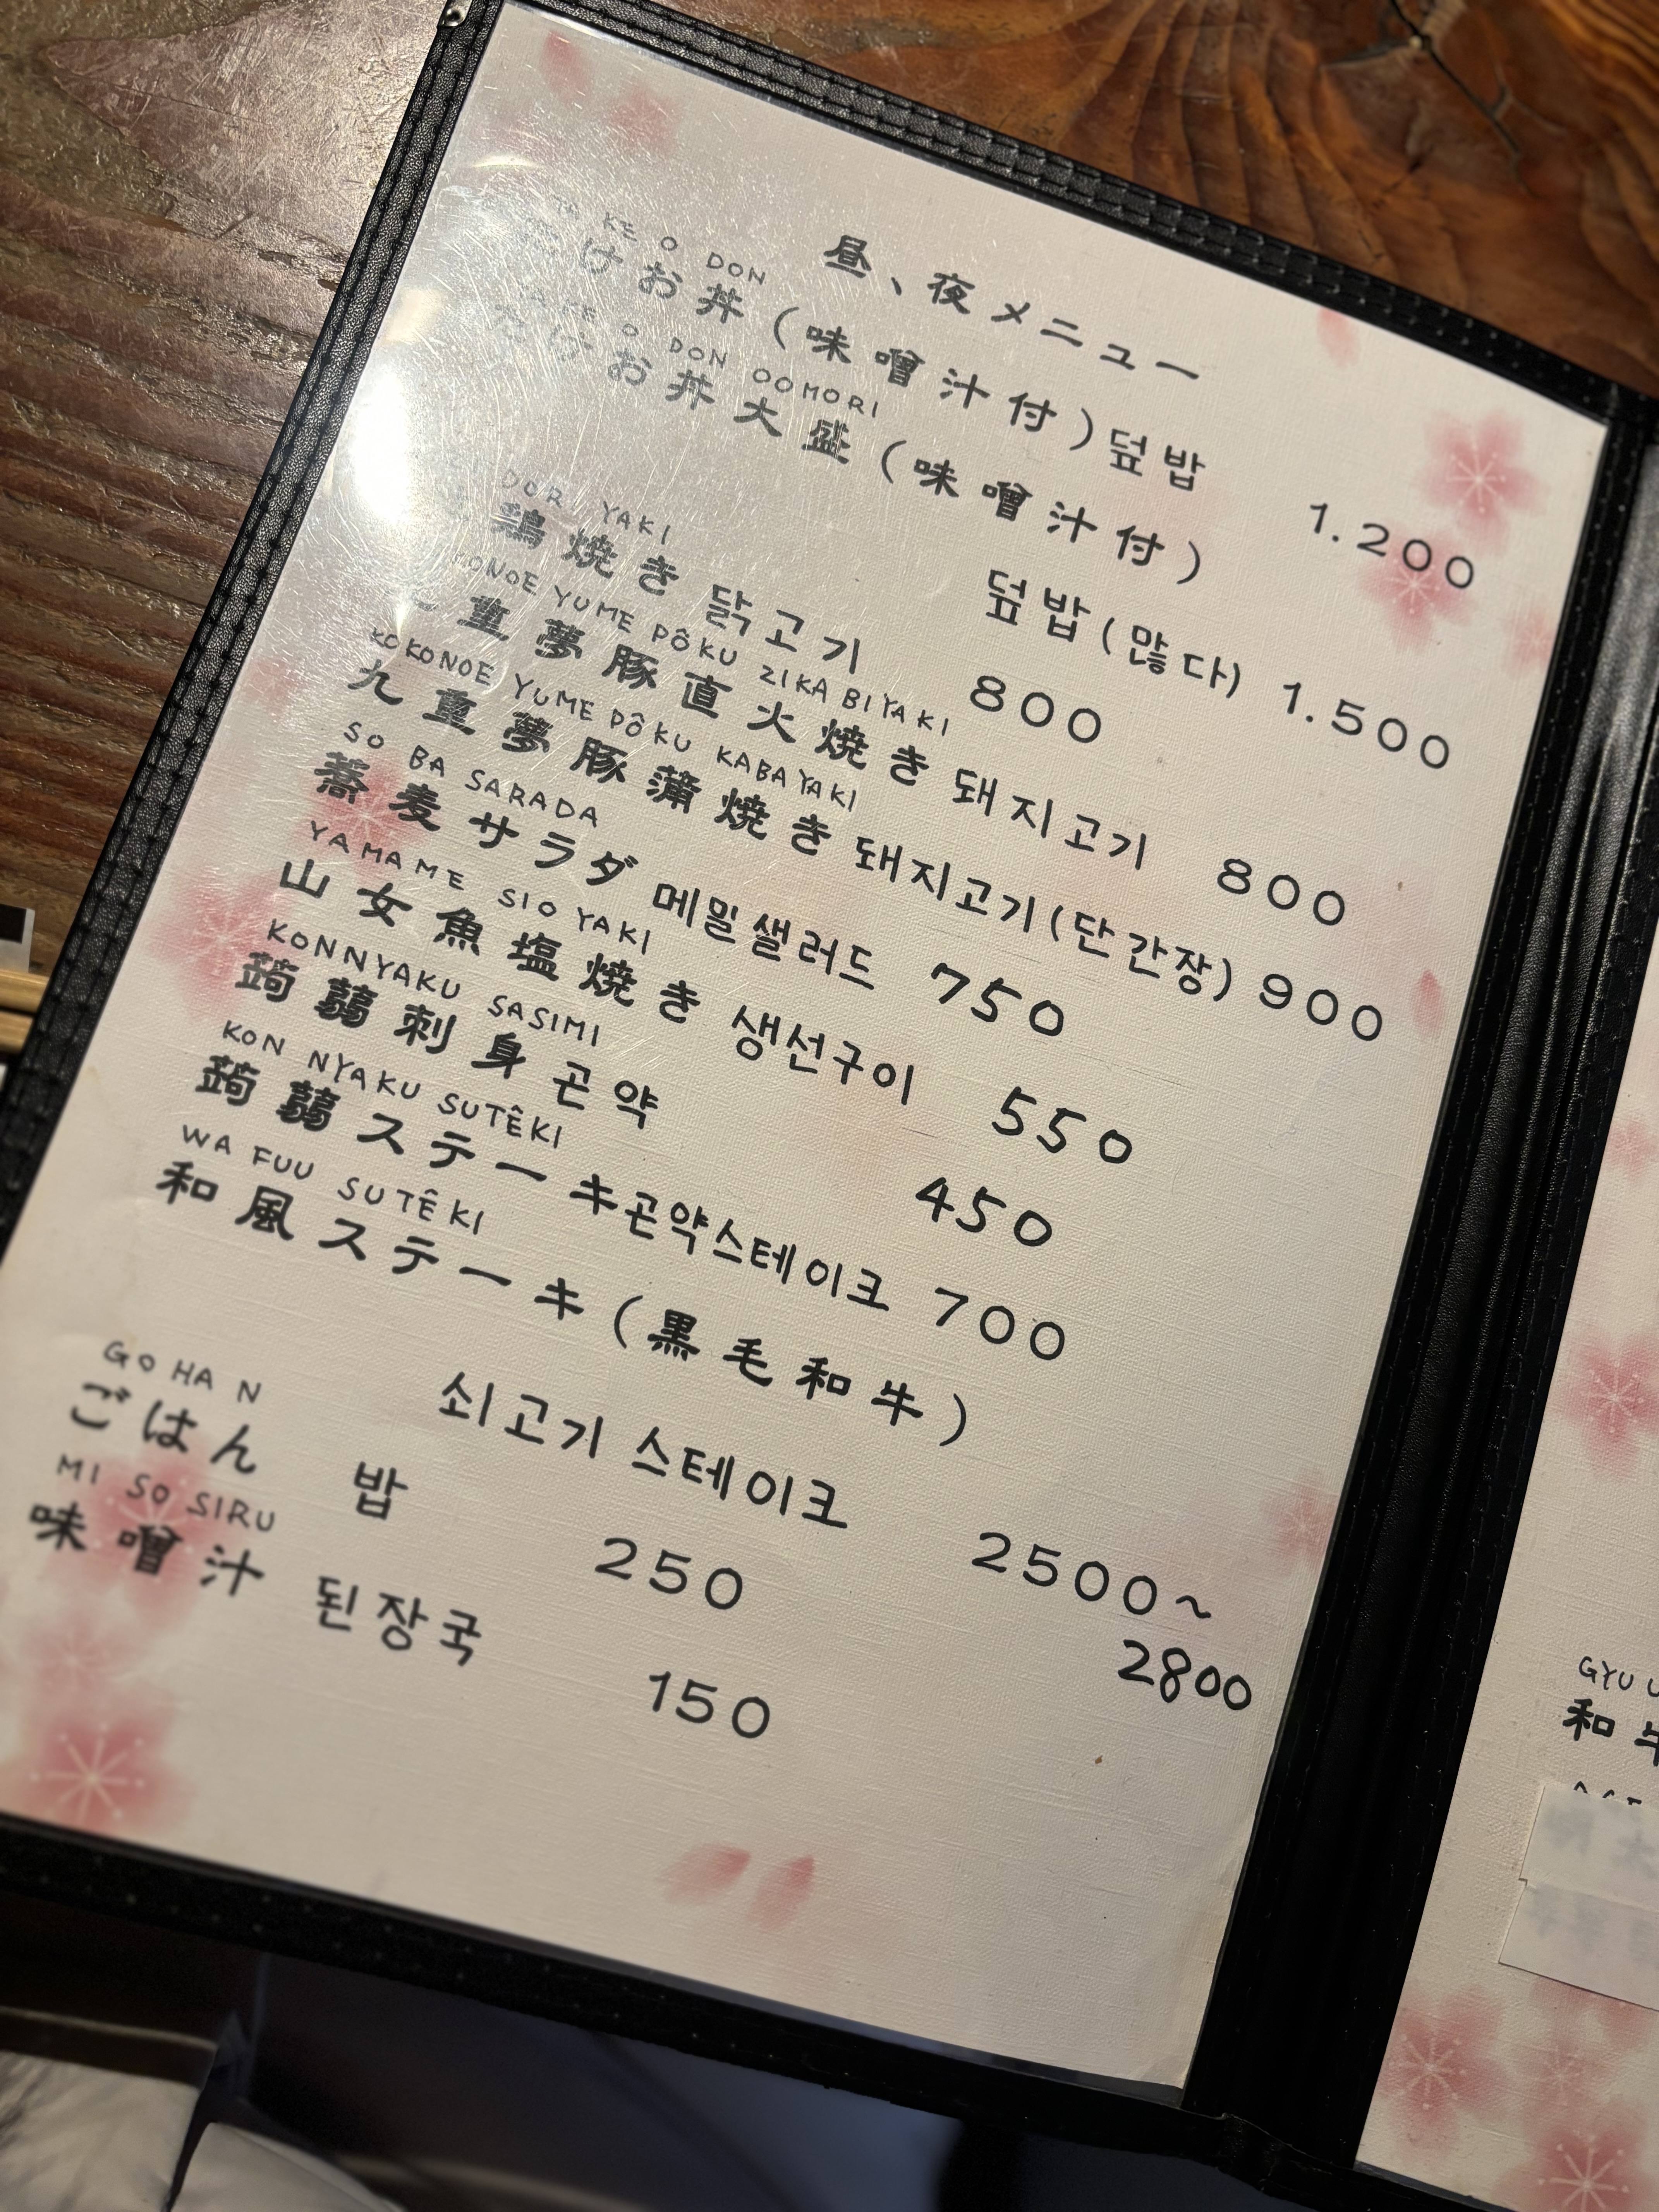 昼、夜メニュー
KE O DON
たけお丼(味噌汁付)덮밥 1.200
KE O DON OOMORI
たけお丼大盛(味噌汁付)
덮밥(많다) 1.500
DORI YAKI
鶏焼き 닭고기 800
KONOE YUME PÔKU ZIKA BIYAKI
重夢豚直火焼き 돼지고기 800
KOKONOE YUME PÔKU KABAYAKI
九重夢豚蒲焼き 돼지고기(단간장) 900
SO BA SARADA
蕎麦サラダ 메밀샐러드 750
YAMAME SIO YAKI
山女魚塩焼き 생선구이 550
KONNYAKU SASIMI
蒟蒻刺身 곤약 450
KON NYAKU SUTÊKI
蒟蒻ステーキ곤약스테이크 700
WA FUU SUTÊKI
和風ステーキ(黒毛和牛)
쇠고기 스테이크 2500~
2800
GO HA N
ごはん 밥 250
MI SO SIRU
味噌汁 된장국 150
GYU U
和牛